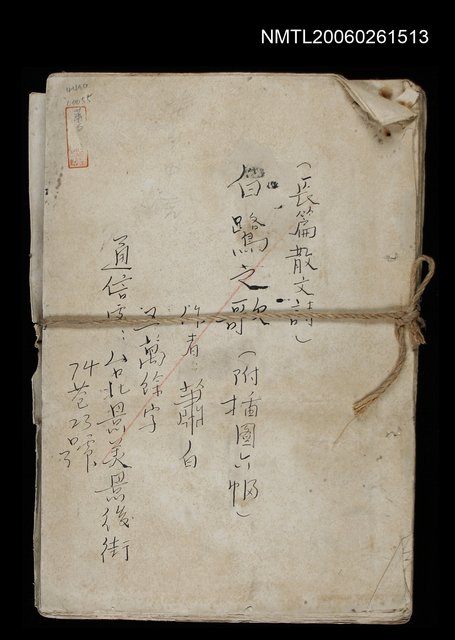 NMTL20060261513
(長篇散文詩)
白鷺之歌(附插圖六幅)
作者:蕭白
三萬餘字
通信處:台北景美景後街
74巷23號